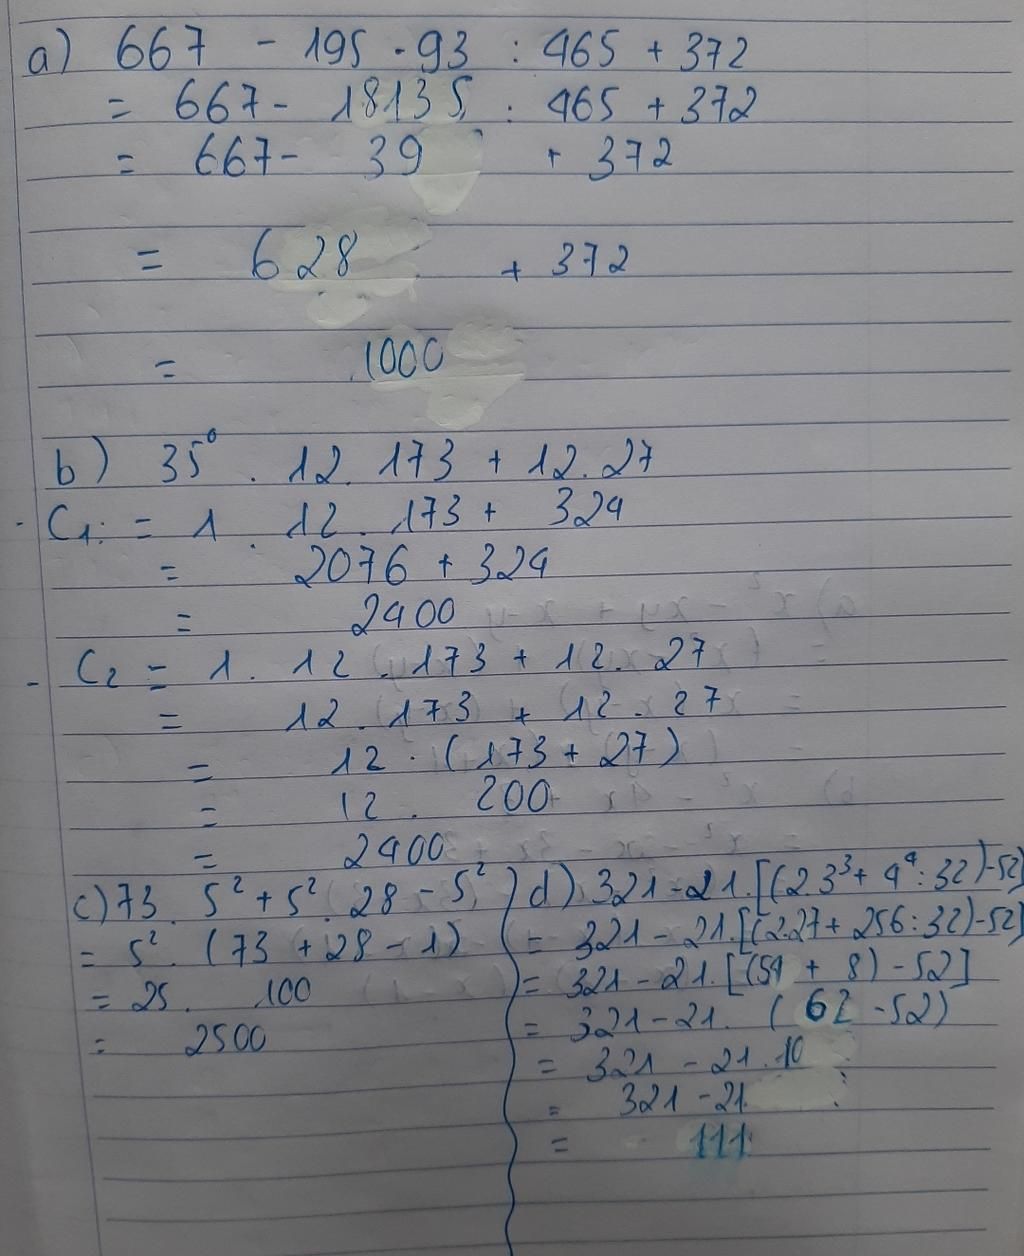 a) 667 - 195 . 93 : 465 + 372
= 667 - 18135 : 465 + 372
= 667 - 39 + 372
= 628 + 372
= 1000
b) 35⁰ . 12 . 173 + 12 . 27
- C₁: = 1 . 12 . 173 + 324
= 2076 + 324
= 2400
- C₂ = 1 . 12 . 173 + 12 . 27
= 12 . 173 + 12 . 27
= 12 . (173 + 27)
= 12 . 200
= 2400
c) 73 . 5² + 5² . 28 - 5²
= 5² . (73 + 28 - 1)
= 25 . 100
= 2500
d) 321 - 21 . [(2 3³ + 4⁴ : 32) - 52]
= 321 - 21 . [(2.27 + 256 : 32) - 52]
= 321 - 21 . [(54 + 8) - 52]
= 321 - 21 . (62 - 52)
= 321 - 21 . 10
= 321 - 21
= 111